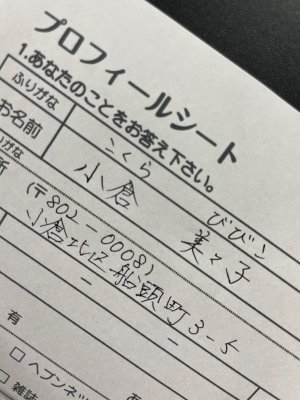 プロフィールシート
1.あなたのことをお答え下さい。
ふりがな こくら びびこ
お名前 小倉 美々子
りがな
所 (〒802-0008)
小倉北区船頭町3-5
有
□ヘブンネッ
□雑誌